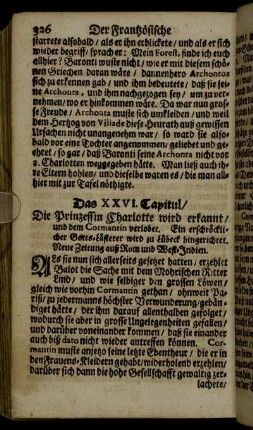 326 Der Frantzösische
startete alsobald / als er ihn erblickete / und als er sich
wieder begriff / sprach er: Mein Forest. finde ich euch
allhier? Baronti wuste nicht / wie er mit diesem schö-
nen Griechen daran wäre / dannenhero Archontas
sich zu erkennen gab / und ihm bedeutete / daß sie seine
Archonta, und ihm nachgezogen sey / um zu ver-
nehmen / wo er hinkommen wäre. Da war nun gros-
se Freude / Archonta muste sich umkleiden / und weil
dem Hertzog von Villade diese Heirath aus gewissen
Ursachen nicht unangenehm war / so ward sie also-
bald vor eine Tochter angenommen / geliebet und ge-
ehret / so gar / daß Baronti seine Archonta nicht vor
Charlotten weggegeben hätte. Man ließ auch ih-
re Eltern hohlen / und dieselbe waren es / die man all-
hier mit zur Tafel nöthigte.
Das XXVI. Capitul /
Die Prinzeßin Charlotte wird erkannt /
und dem Cormantin verlobet. Ein erschröckli-
cher Gotts-Lästerer wird zu Lübeck hingerichtet.
Neue Zeitung auß Rom und West-Indien.
Als sie nun sich allerseits gesetzet hatten / erzehlet
Balot die Sache mit dem Mohrischen Ritter
Eind / und wie selbiger den grossen Löwen /
gleich wie vorhin Cormantin gethan / ohnweit Pa-
riß / zu jedermanns höchster Verwunderung / gebän-
diget hätte / der ihm darauf allenthalben gefolget /
wodurch sie aber in grosse Ungelegenheiten gefallen /
und darüber voneinander kommen / daß sie einander
auch biß dato nicht wieder antreffen können. Cor-
mantin muste anjetzo seine letzte Ebentheur / die er in
den Frauens-Kleidern gehabt / widerholend erzehlen /
darüber sich dann die hohe Gesellschafft gewaltig zer-
lachete /